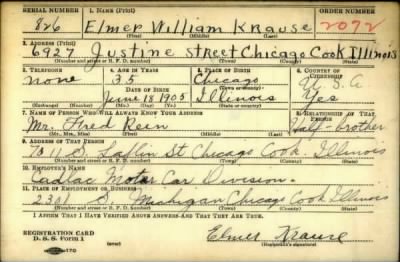 SERIAL NUMBER 1. NAME (Print) ORDER NUMBER
826 Elmer William Krause 2072
(First) (Middle) (Last)
2. ADDRESS (Print)
6927 Justine Street Chicago Cook Illinois
(Number and street or R. F. D. number) (Town) (County) (State)
3. TELEPHONE 4. AGE IN YEARS 5. PLACE OF BIRTH 6. COUNTRY OF CITIZENSHIP
none 35 Chicago U. S. A.
DATE OF BIRTH (Town or county)
June 18 1905 Illinois Yes
(Exchange) (Number) (Mo.) (Day) (Yr.) (State or country)
7. NAME OF PERSON WHO WILL ALWAYS KNOW YOUR ADDRESS 8. RELATIONSHIP OF THAT PERSON
Mr. Fred Rein Half-brother
(Mr., Mrs., Miss) (First) (Middle) (Last)
9. ADDRESS OF THAT PERSON
Laflin St Chicago Cook Illinois
(Number and street or R. F. D. number) (Town) (County) (State)
10. EMPLOYER'S NAME
Cadlac Motor Car Division.
11. PLACE OF EMPLOYMENT OR BUSINESS
2301 S. Michigan Chicago Cook Illinois
(Number and street or R. F. D. number) (Town) (County) (State)
I AFFIRM THAT I HAVE VERIFIED ABOVE ANSWERS AND THAT THEY ARE TRUE.
REGISTRATION CARD Elmer Krause
D. S. S. Form 1 (Registrant's signature)